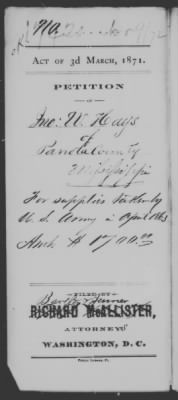 No.
ACT OF 3D MARCH, 1871.
PETITION
OF
Jno: W. Hays
of
Panola County
Mississippi
For supplies taken by
U. S. Army in April 1863
Amt $
FILED BY
RICHARD McALLISTER,
ATTORNEY
WASHINGTON, D. C.